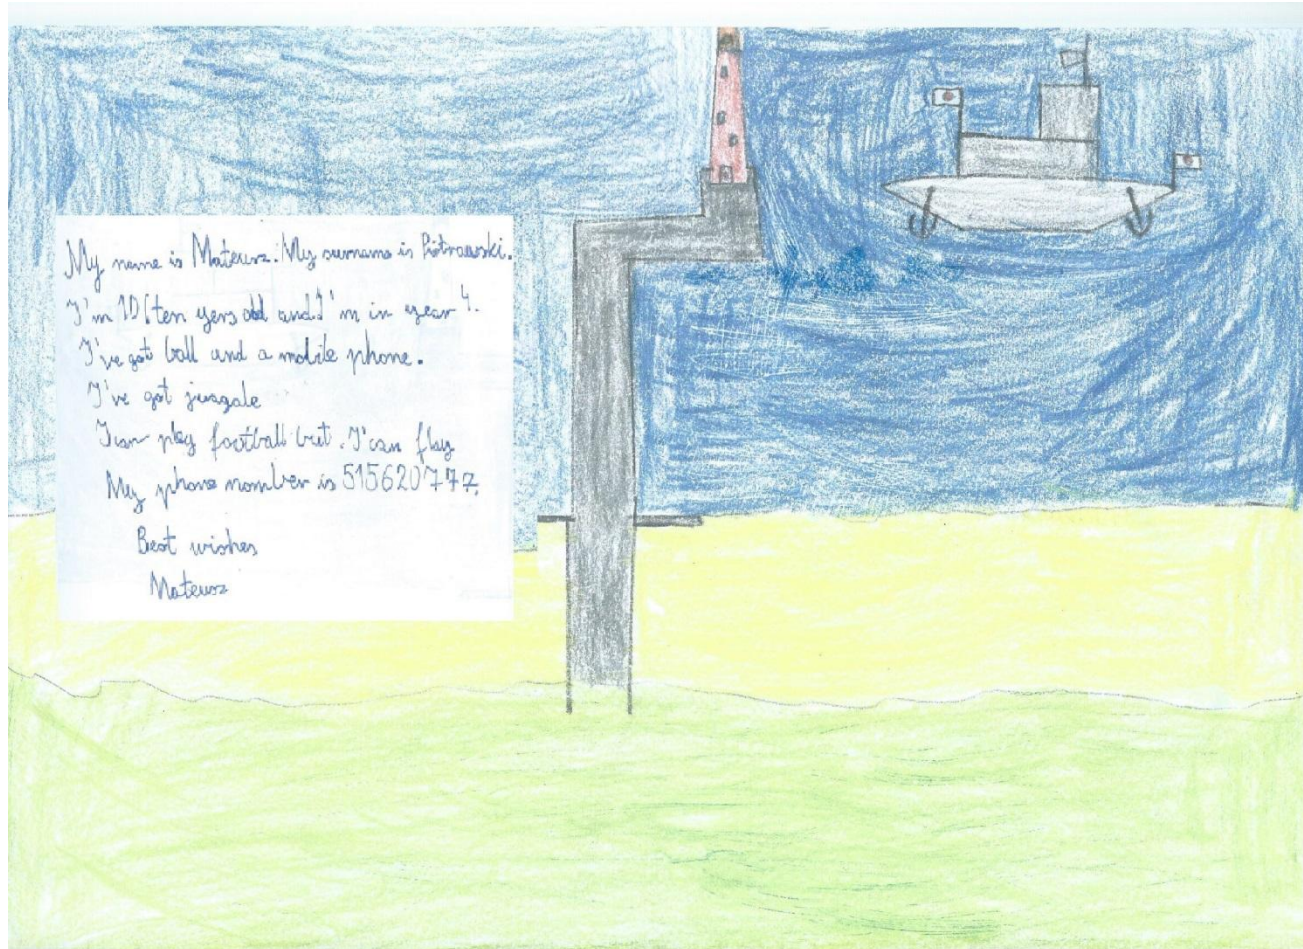 My name is Mateusz. My surname is Piotrowski.
I'm 10 (ten yers old and I'm in year 4.
I've got ball and a mobile phone.
I've got
I can play football but. I'can flay
My phone nomber is 515620777.
Best wishes
Mateusz